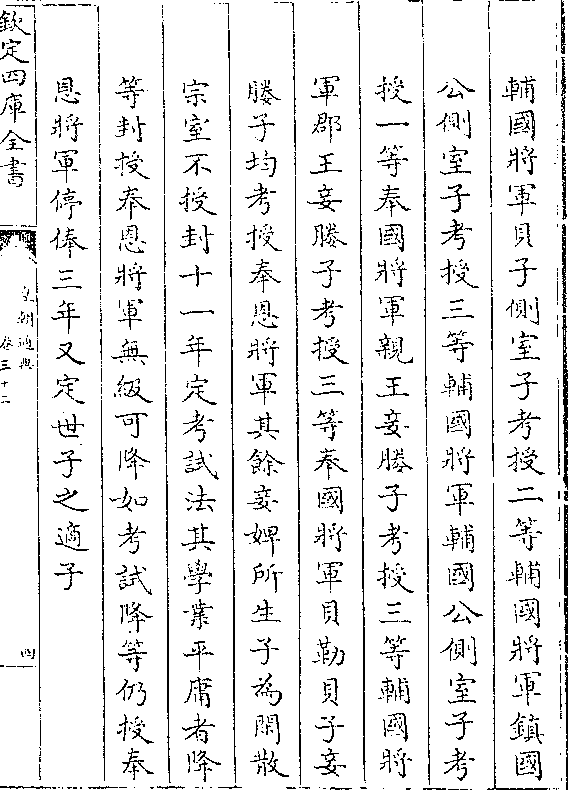 輔國將軍貝子側室子考授二等輔國將軍鎮國
公側室子考授三等輔國將軍輔國公側室子考
授一等奉國將軍親王妾媵子考授三等輔國將
軍郡王妾媵子考授三等奉國將軍貝勒貝子妾
媵子均考授奉恩將軍其餘妾婢所生子為閑散
宗室不授封十一年定考試法其學業平庸者降
等封授奉恩將軍無級可降如考試降等仍授奉
恩將軍停俸三年又定世子之適子
欽定四庫全書
皇朝通典
卷三十二
四